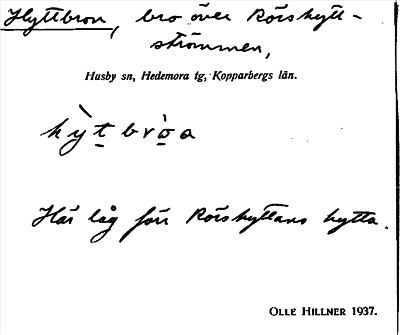 Hyttbron, bro över Rörshytt-
strömmen,
Husby sn, Hedemora tg, Kopparbergs län.
hy̌tbròa
Här låg förr Rörshyttans hytta.
OLLE HILLNER 1937.